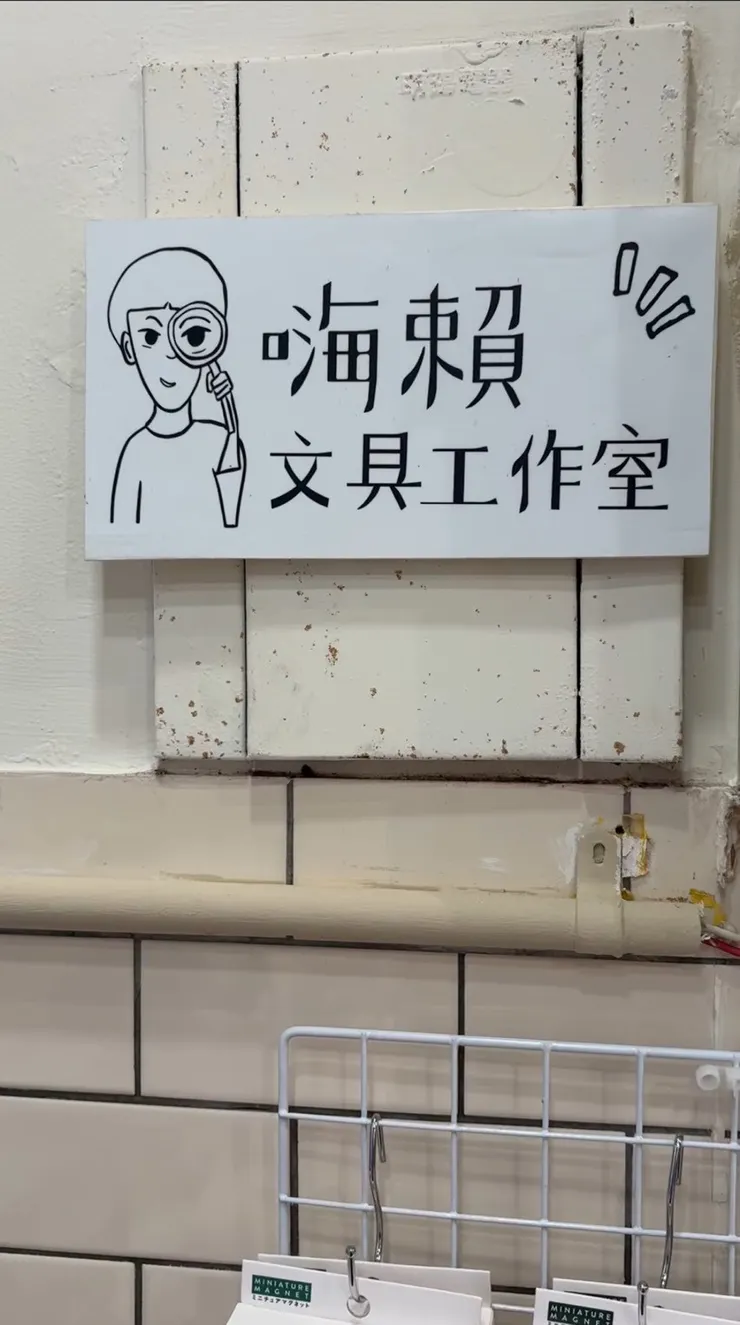 嗨賴
文具工作室
MINIATURE
MAGNET
ミニチュアマグネット
MINIATURE
MAGNET